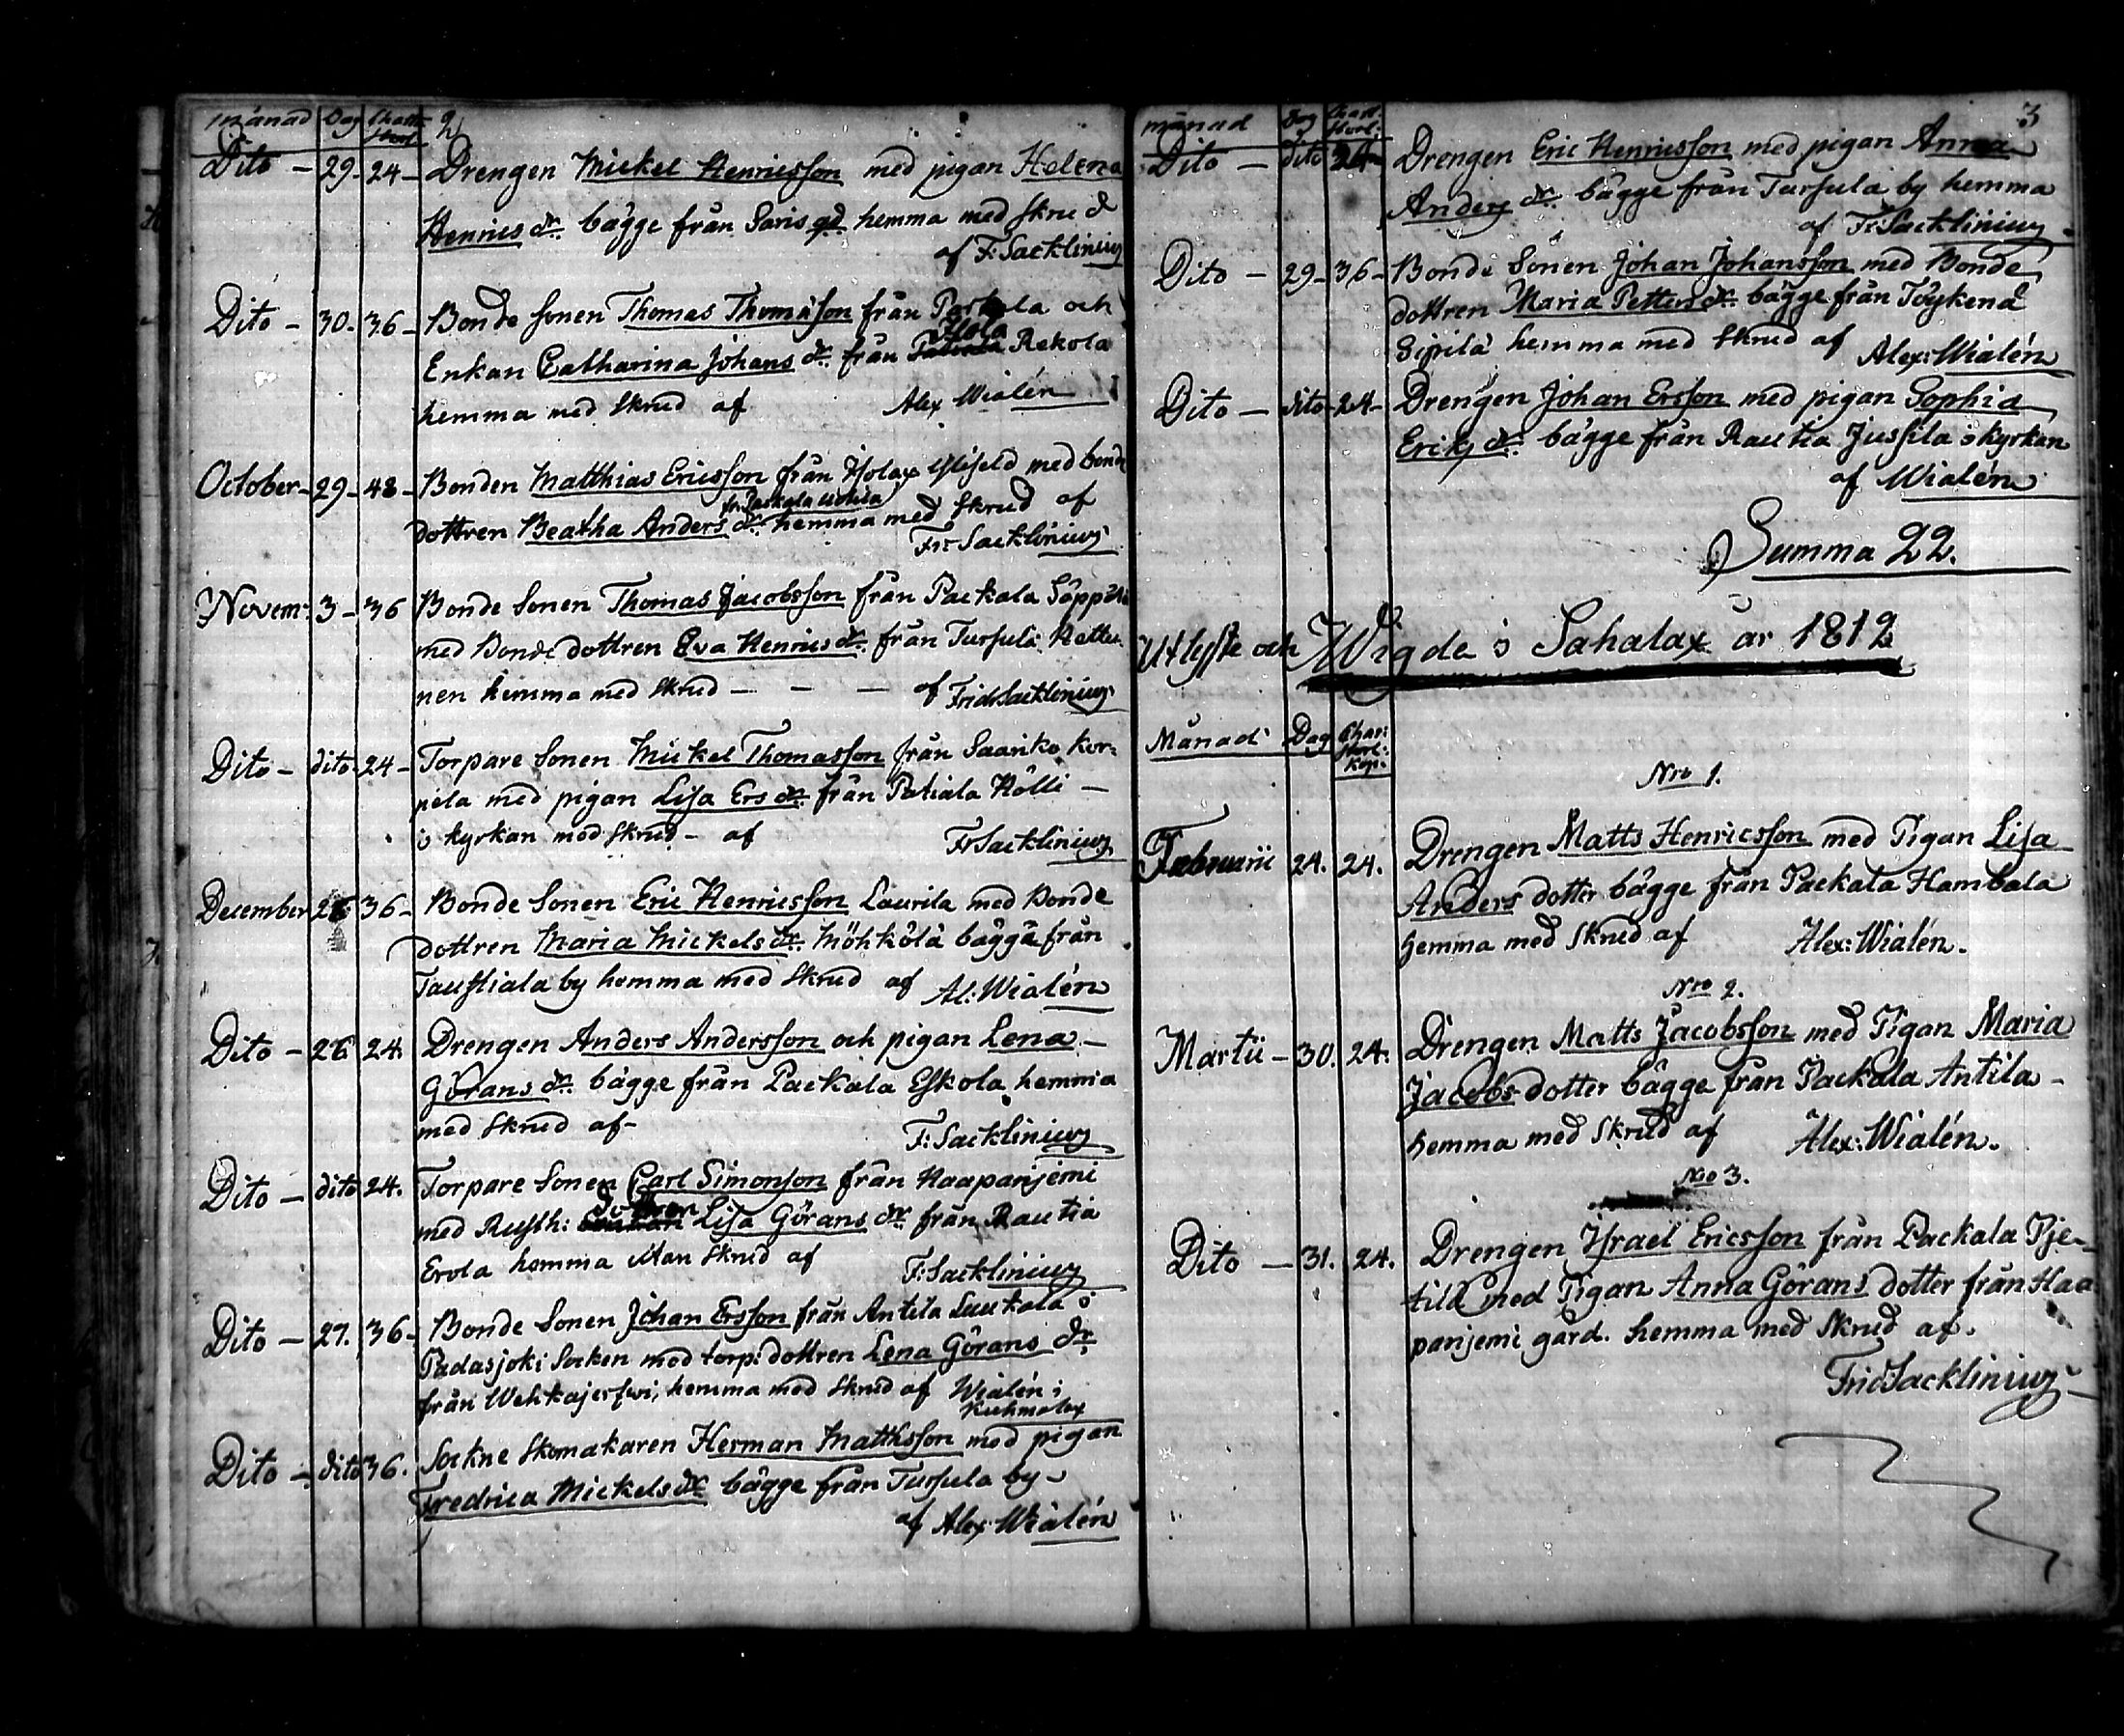 månad Dag Chatt. 2
Dito - 29 - 24 - Drengen Mickel Henricsson med pigan Helena
Henrics dr. bägge från Saris gd hemma med skrud
af F: Sacklinius
Dito - 30 - 36 - Bonde sonen Thomas Thomasson från och
Enkan Catharina Johans dr. från Rekola
hemma med skrud af Alex Wialén
October - 29 - 48 - Bonden Matthias Ericsson från Isolax med bonde
dottren Beatha Anders dr. hemma med skrud af
Fr: Sacklinius
Novem: 3 - 36 Bonde sonen Thomas Jacobsson från Packala Söppilä
med Bonde dottren Eva Henrics dr. från Tursula Hettu-
nen hemma med skrud - - - af Frid Sacklinius
Dito - dito - 24 - Torpare sonen Mickel Thomasson från Saariko kor-
pela med pigan Lisa Ers dr. från Patiala Kölli -
i kyrkan med skrud - af Fr Sacklinius
December 26 36 - Bonde sonen Eric Henricsson Laurila med Bonde
dottren Maria Mickels dr. Möhkölä bägge från
Taustiala by hemma med skrud af Al: Wialén
Dito - 26 24. Drengen Anders Andersson och pigan Lena -
Görans dr. bägge från Packala Eskola hemma
med skrud af - F: Sacklinius
Dito - dito 24. Torpare sonen Carl Simonson från Haapanjemi
med Rusth: dottren Lisa Görans dr från Rautia
Erola hemma utan skrud af F: Sacklinius
Dito - 27. 36 - Bonde sonen Johan Ersson från Antila Luukala i
Padasjoki socken med torp: dottren Lena Görans dr.
från Wehkajerfwi, hemma med skrud af Wialén i
Kuhmalax
Dito - dito 36. Sockne skomakaren Herman Matthsson med pigan
Fredrica Mickels dr. bägge från Tursula by -
af Alex: Wialén
månad Dag 3
Dito - dito 24 - Drengen Eric Henricsson med pigan Anna
Anders dr. bägge från Tursula by hemma
af F: Sacklinius
Dito - 29 - 36 - Bonde Sonen Johan Johansson med Bonde
dottren Maria Petters dr. bägge från Töykenä
Sipilä hemma med skrud af Alex: Wialén
Dito - dito - 24 - Drengen Johan Ersson med pigan Sophia
Eriks dr. bägge från Rautia Jussila i kyrkan
af Wialén
Summa 22.
Utlyste och Wigde i Sahalax år 1812
Månad Dag Char:
Kop:
Nro 1.
Februarii 24. 24. Drengen Matts Henricsson med Pigan Lisa
Anders dotter bägge från Packala Hambala
hemma med Skrud af Alex: Wialén.
Nro 2.
Martii - 30. 24. Drengen Matts Jacobsson med Pigan Maria
Jacobs dotter bägge från Packala Antila -
hemma med Skrud af Alex: Wialén.
Nro 3.
Dito - 31. 24. Drengen Israel Ericsson från Packala Pje-
tilä med Pigan Anna Görans dotter från Haa
panjemi gård. hemma med Skrud af.
Frid Sacklinius